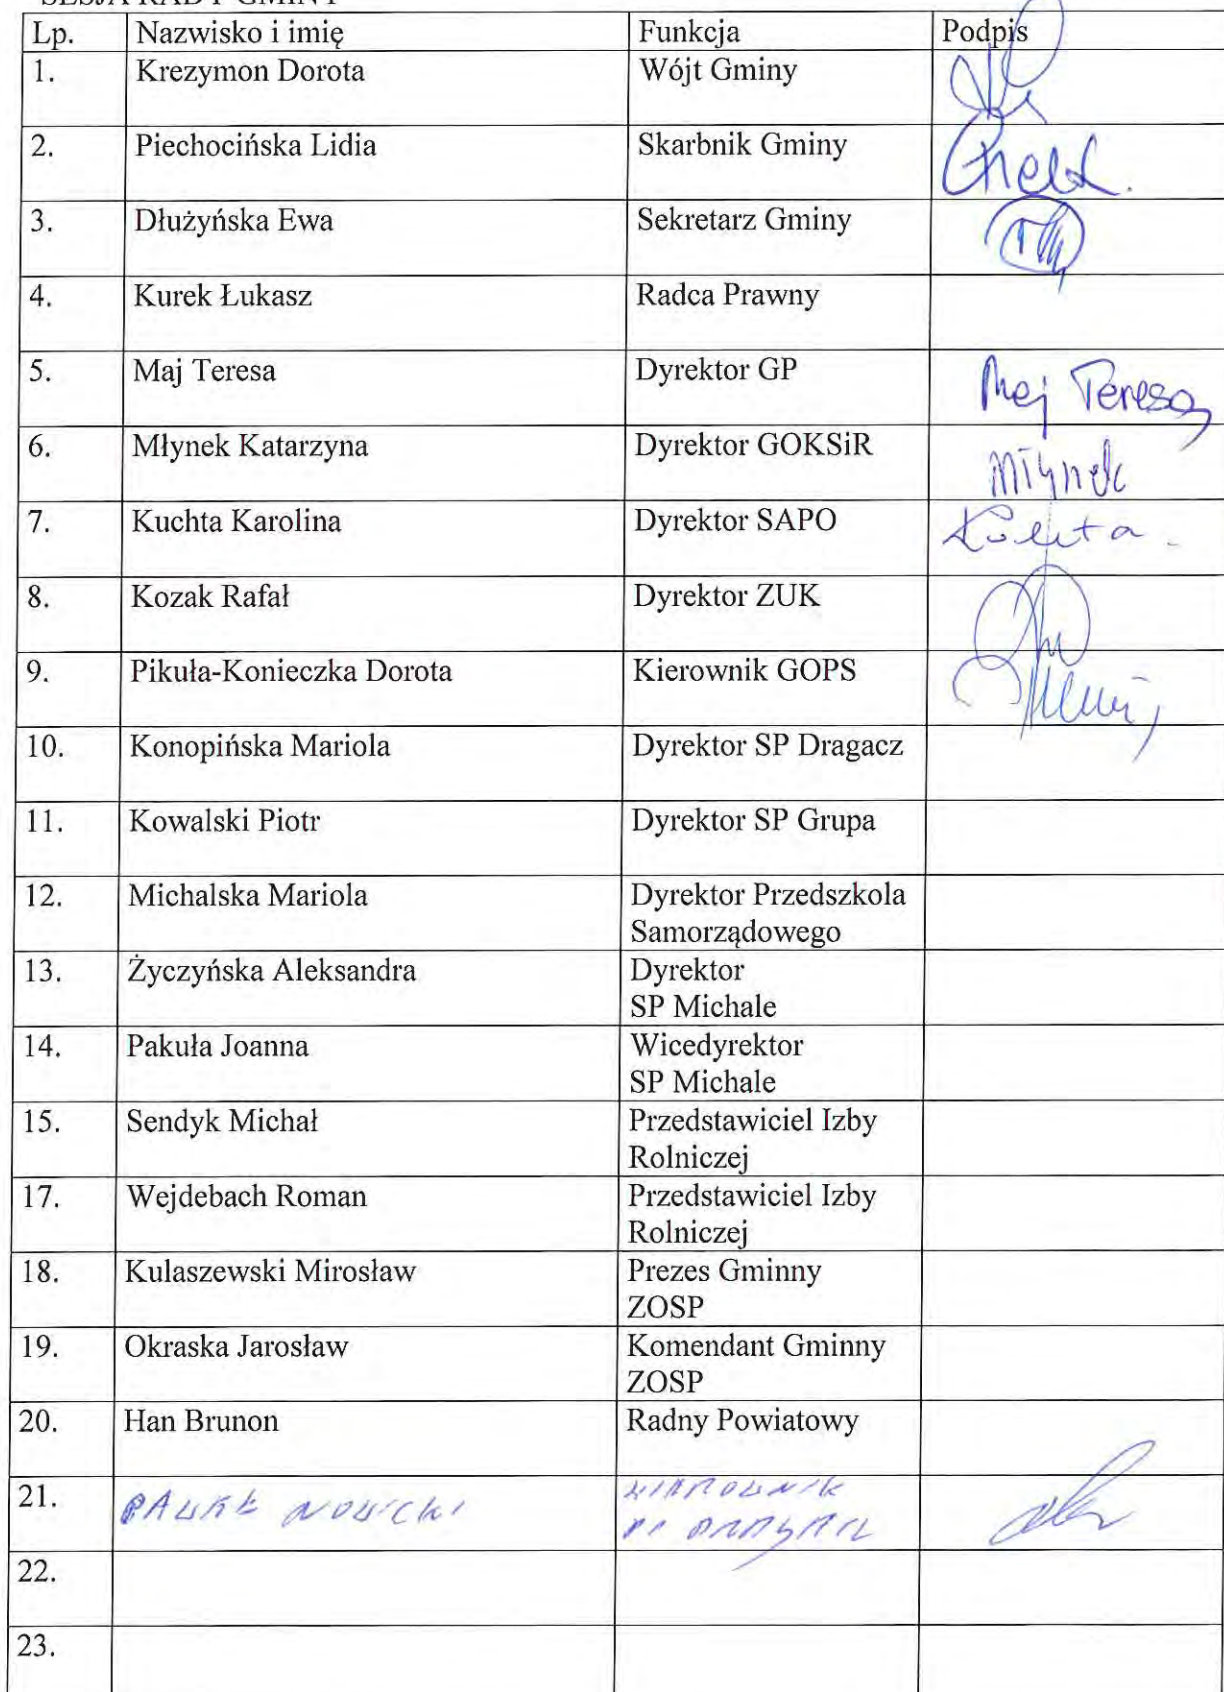 SESJA RADY GMINY
Lp. Nazwisko i imię Funkcja Podpis
1. Krezymon Dorota Wójt Gminy
2. Piechocińska Lidia Skarbnik Gminy
3. Dłużyńska Ewa Sekretarz Gminy
4. Kurek Łukasz Radca Prawny
5. Maj Teresa Dyrektor GP Maj Teresa
6. Młynek Katarzyna Dyrektor GOKSiR Młynek
7. Kuchta Karolina Dyrektor SAPO Kuchta
8. Kozak Rafał Dyrektor ZUK
9. Pikuła-Konieczka Dorota Kierownik GOPS
10. Konopińska Mariola Dyrektor SP Dragacz
11. Kowalski Piotr Dyrektor SP Grupa
12. Michalska Mariola Dyrektor Przedszkola
Samorządowego
13. Życzyńska Aleksandra Dyrektor
SP Michale
14. Pakuła Joanna Wicedyrektor
SP Michale
15. Sendyk Michał Przedstawiciel Izby
Rolniczej
17. Wejdebach Roman Przedstawiciel Izby
Rolniczej
18. Kulaszewski Mirosław Prezes Gminny
ZOSP
19. Okraska Jarosław Komendant Gminny
ZOSP
20. Han Brunon Radny Powiatowy
21. PAWEŁ NOWICKI KIEROWNIK
22.
23.